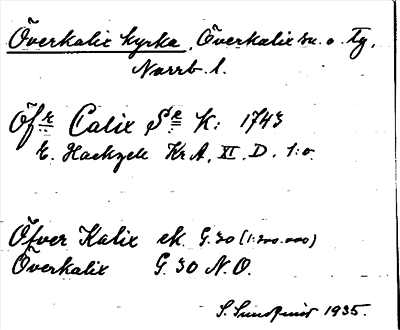 Överkalix kyrka, Överkalix sn. o. tg,
Norrb. l.
Öfr Calix S:n K: 1743
E. Hackzell KrA, XI. D. 1:o.
Öfver Kalix ek. G.30 (1:200.000)
Överkalix G. 30 N.O.
S. 1935.